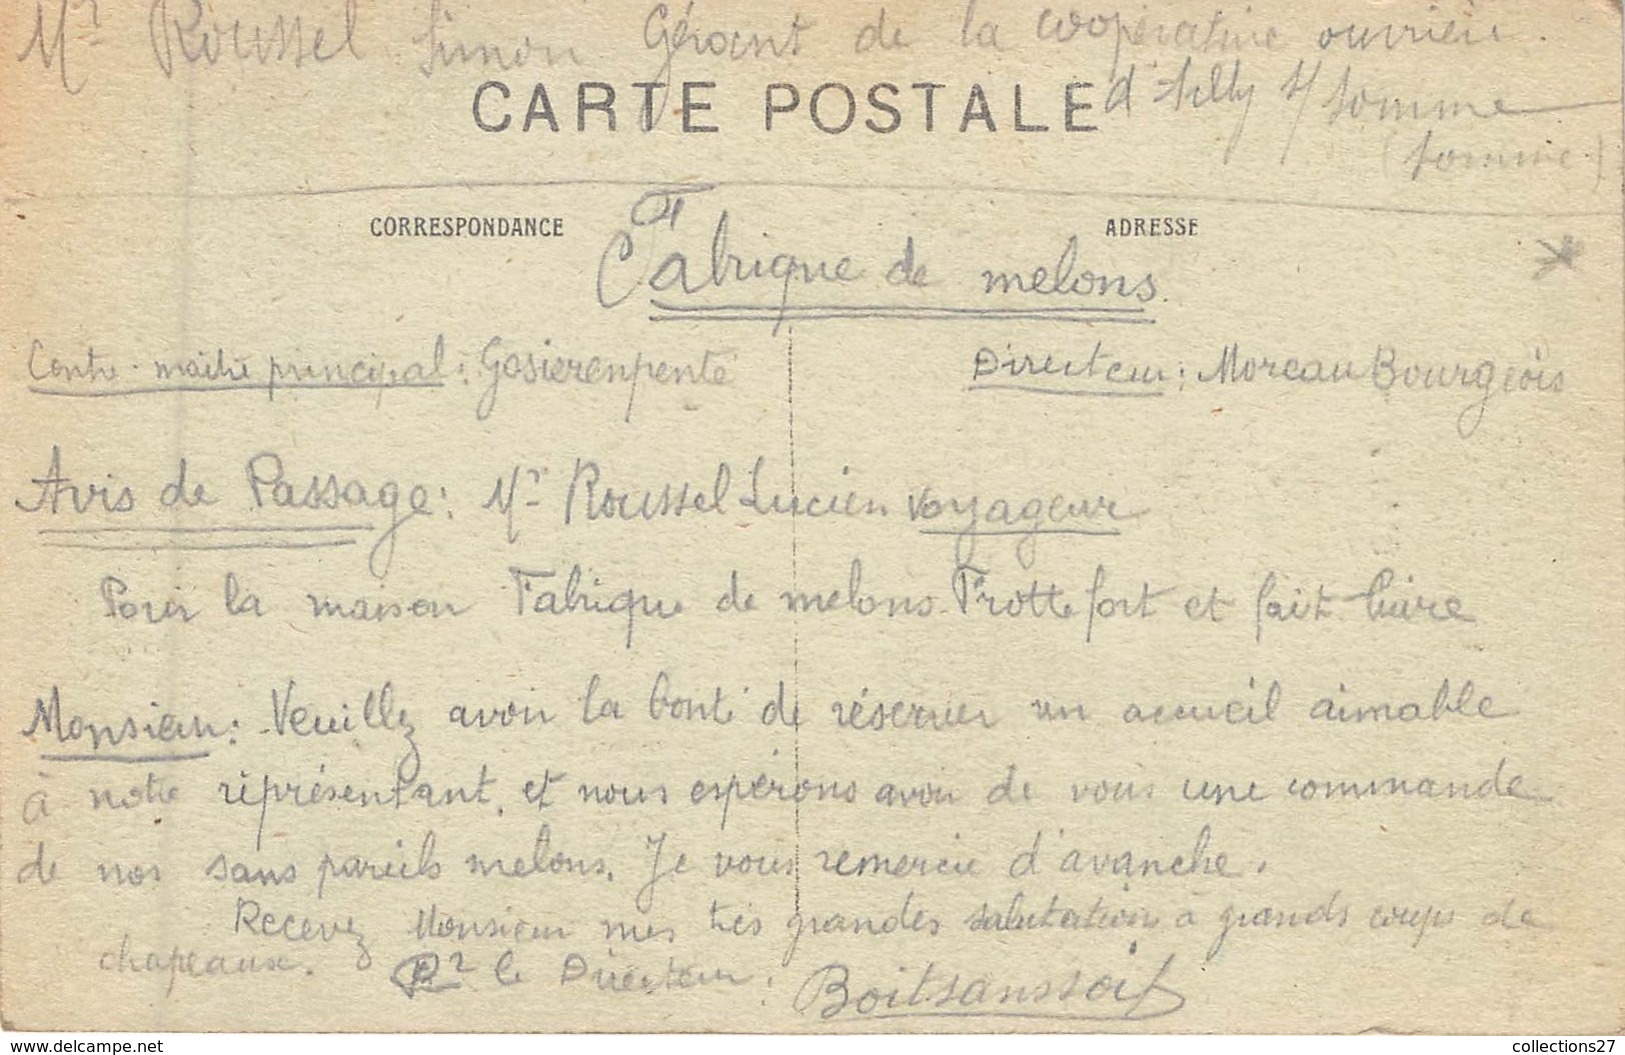 Mr Roussel Simon Gérant de la coopérative ouvrière.
d'Ailly s/ somme
(somme)
CARTE POSTALE
CORRESPONDANCE
ADRESSE
Fabrique de melons
Contre-maitre principal: Gosierenpente
Directeur: Moreau Bourgeois
Avis de Passage: Mr Roussel Lucien voyageur
Pour la maison Fabrique de melons Frottefort et fait luire
Monsieur: Veuillez avoir la bonté de réserver un accueil aimable
à notre réprésentant, et nous espérons avoir de vous une commande
de nos sans pareils melons. Je vous remercie d'avanche.
Recevez Monsieur mes très grandes salutation à grands coups de
chapeaux.
Pr le Directeur: Boitsanssoif
www.delcampe.net
collections27